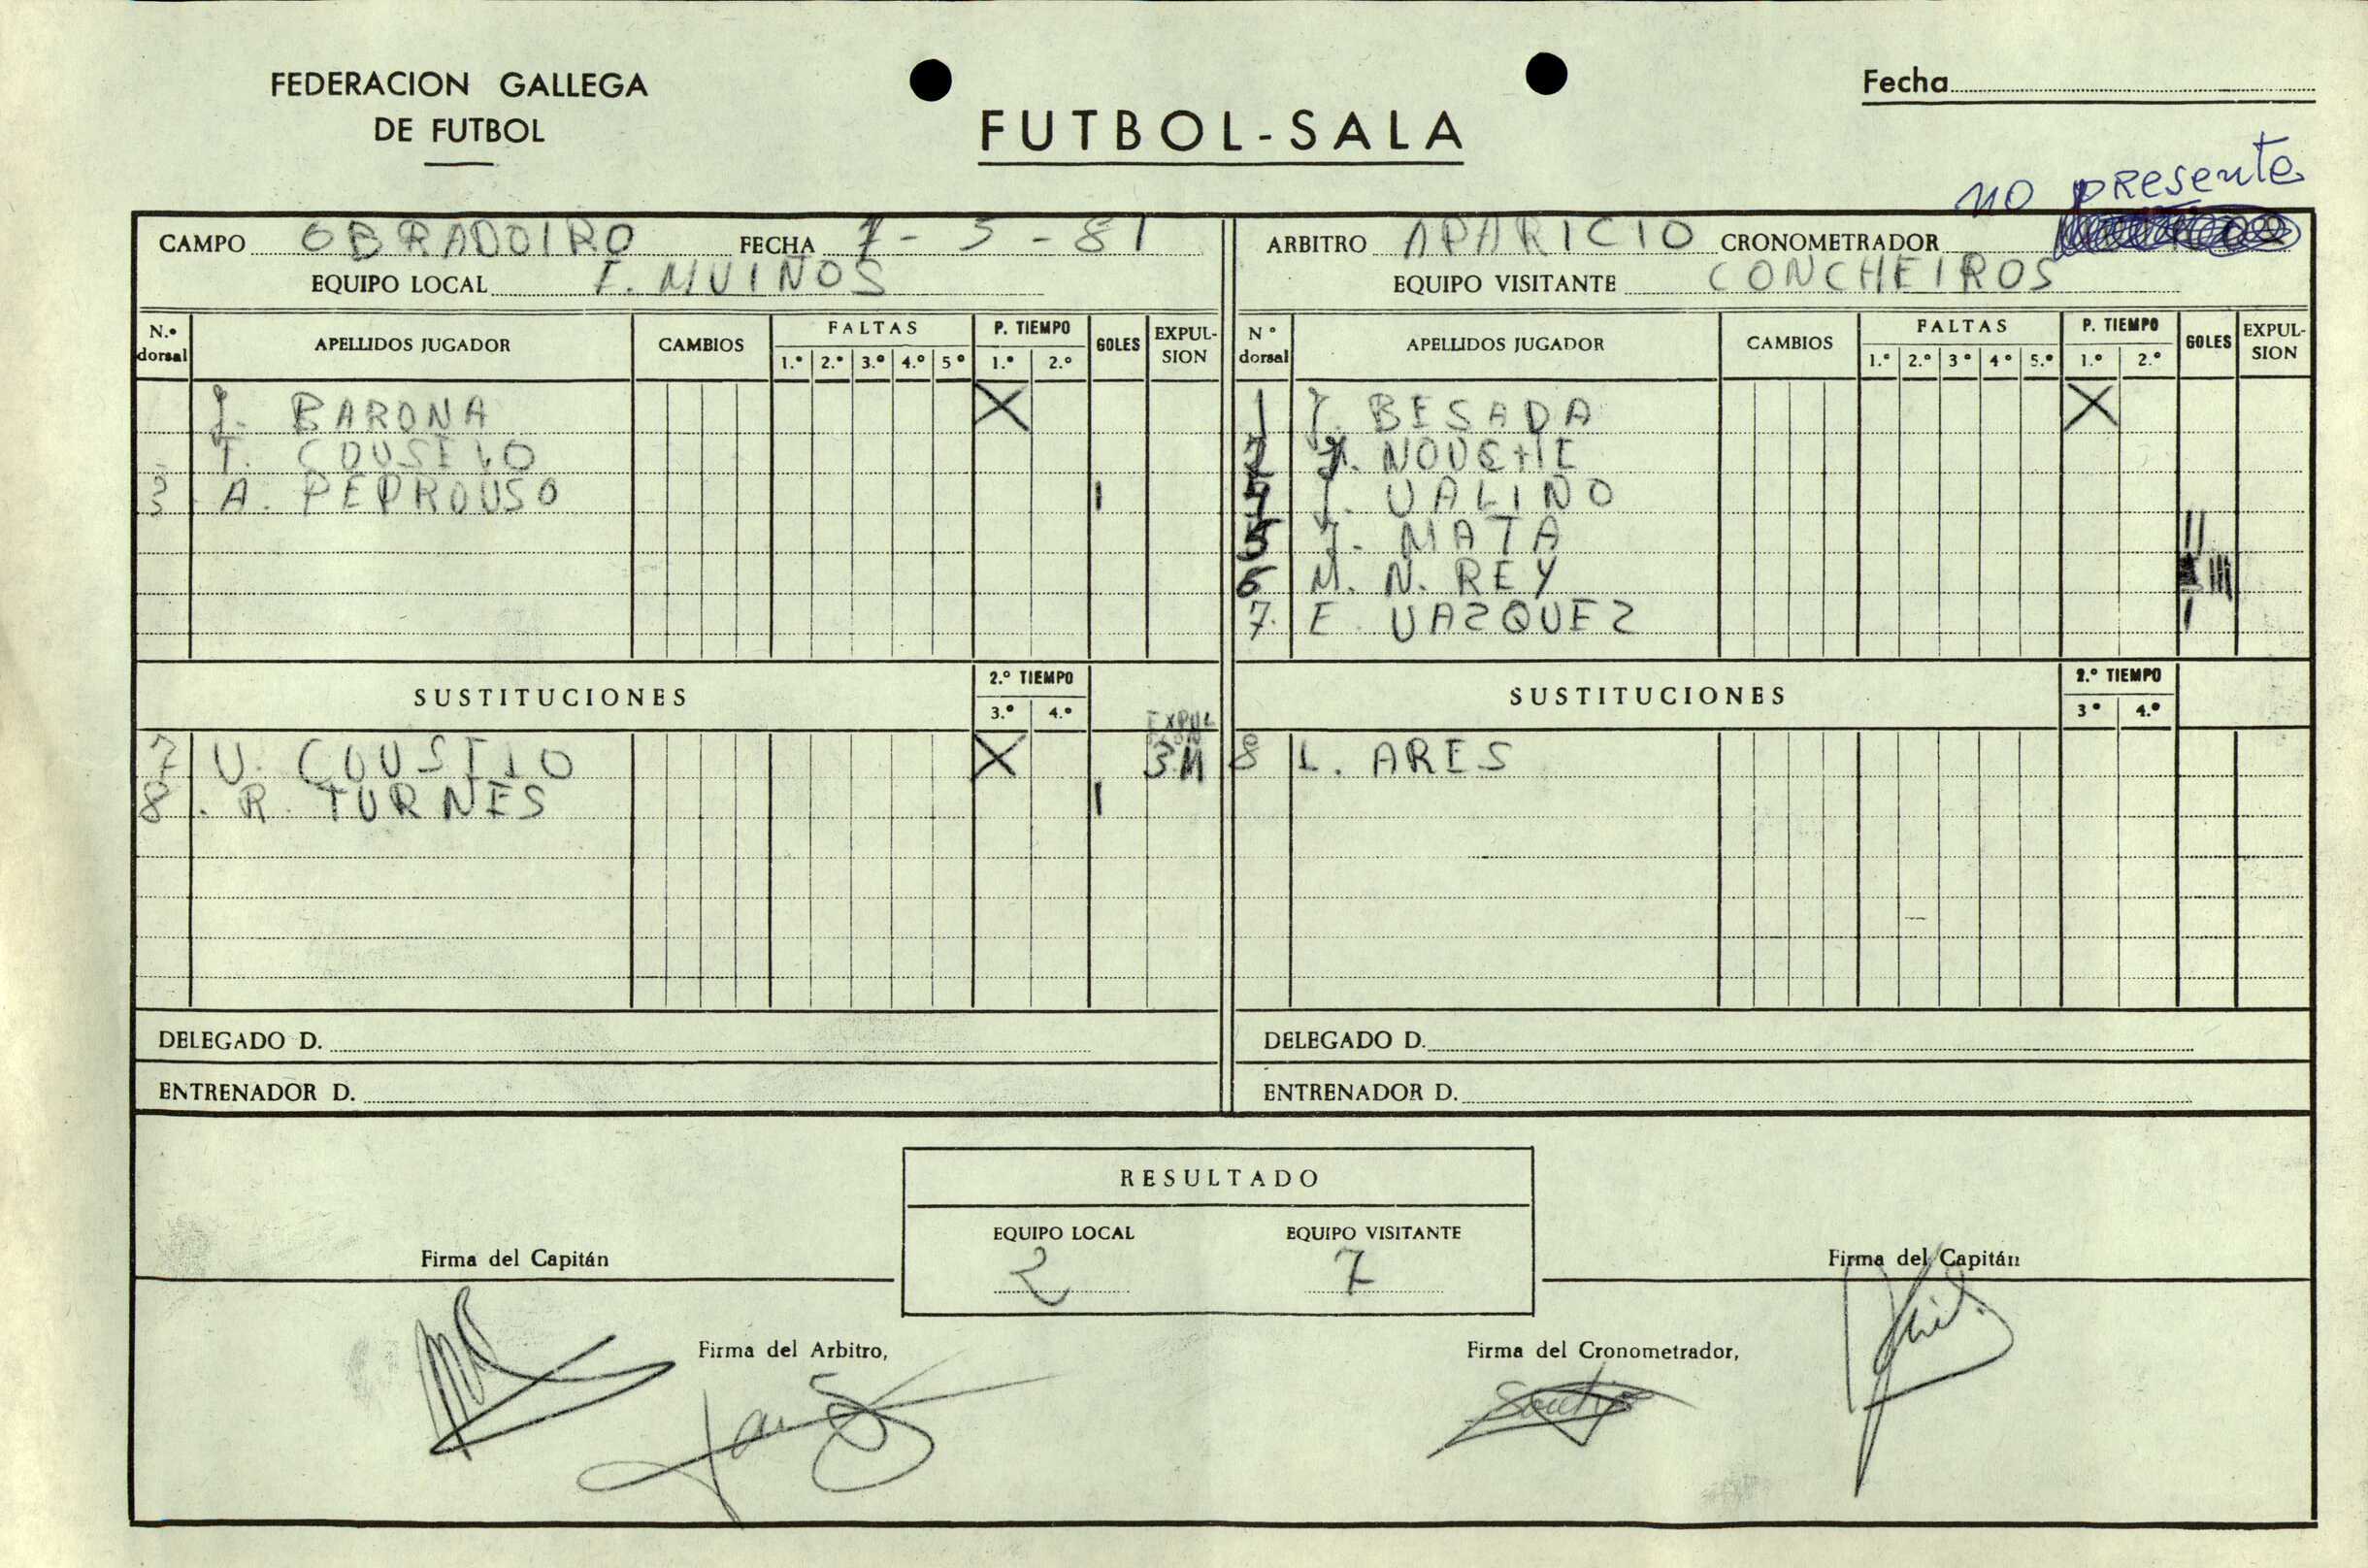 FEDERACION GALLEGA
DE FUTBOL
FUTBOL-SALA
Fecha
no presente
CAMPO OBRADOIRO FECHA 7-5-81
EQUIPO LOCAL T. MUIÑOS
ARBITRO APARICIO CRONOMETRADOR
EQUIPO VISITANTE CONCHEIROS
N.º dorsal APELLIDOS JUGADOR CAMBIOS FALTAS 1.º 2.º 3.º 4.º 5º P. TIEMPO 1.º 2.º GOLES EXPUL-SION
J. BARONA X
T. COUSELO
3 A. PEDROUSO I
SUSTITUCIONES 2.º TIEMPO 3.º 4.º
EXPUL
7 U. COUSELO X 3 M
8. R. TURNES I
DELEGADO D.
ENTRENADOR D.
Nº dorsal APELLIDOS JUGADOR CAMBIOS FALTAS 1.º 2.º 3º 4º 5.º P. TIEMPO 1.º 2.º GOLES EXPUL-SION
1 J. BESADA X
2 J. NOUCHE
J. VALIÑO
5 J. MATA II
6 M. N. REY III
7. E. VAZQUEZ I
SUSTITUCIONES 2.º TIEMPO 3º 4.º
8 L. ARES
DELEGADO D.
ENTRENADOR D.
RESULTADO
EQUIPO LOCAL EQUIPO VISITANTE
2 7
Firma del Capitán
Firma del Capitán
Firma del Arbitro,
Firma del Cronometrador,